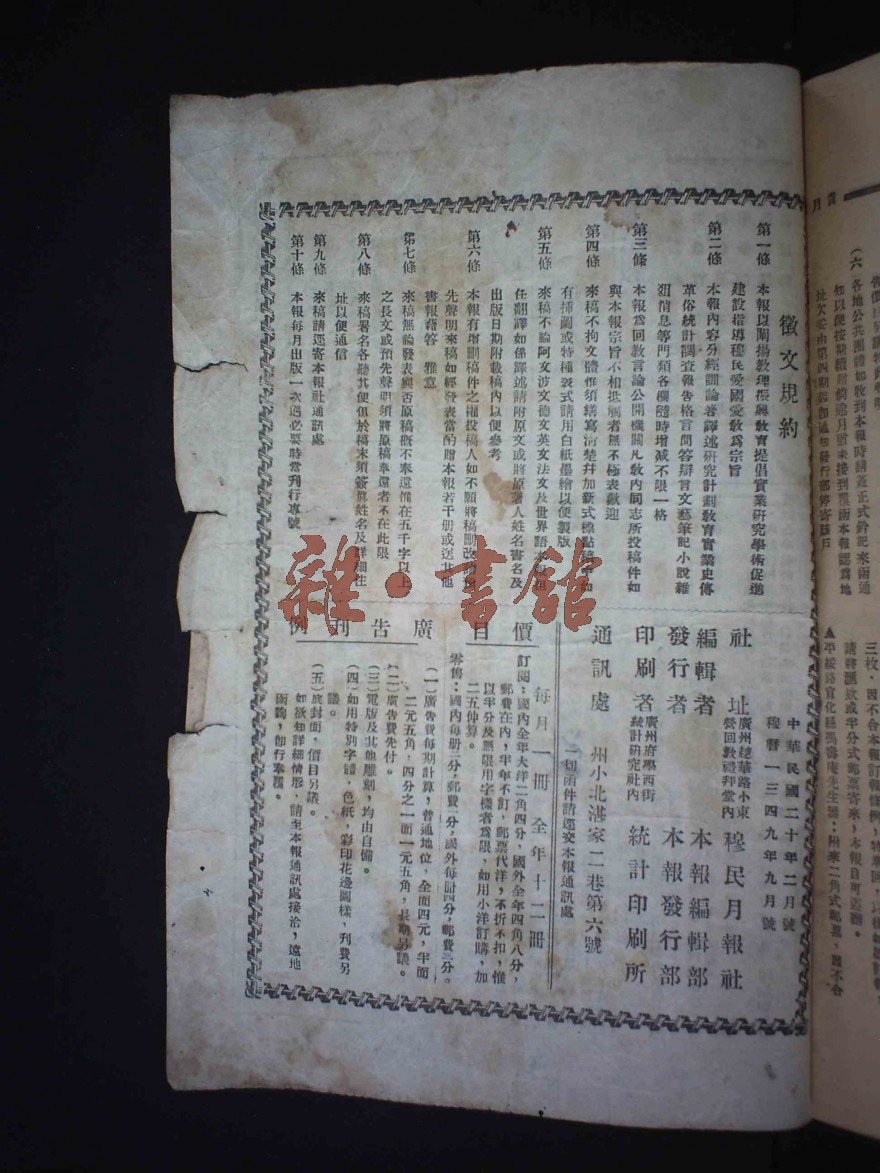 徵文規約
第一條　本報以闡揚教理振興教育提倡實業研究學術促進
建設指導穆民愛國愛教爲宗旨
第二條　本報內容分經訓論著譯述研究計劃教育實業史傳
革俗統計調查報告格言問答辯言文藝筆記小說雜
俎消息等門類各欄隨時增減不限一格
第三條　本報爲回教言論公開機關凡教內同志所投稿件如
與本報宗旨不相抵觸者無不極表歡迎
第四條　來稿不拘文體但須繕寫清楚幷加新式標點符號如
有插圖或特種表式請用白紙墨繪以便製版
第五條　來稿不論阿文波文德文英文法文及世界語本報担
任翻譯如係譯述請附原文或將原著人姓名書名及
出版日期附載稿內以便參考
第六條　本報有增刪稿件之權投稿人如不願將稿刪改請預
先聲明來稿如經發表當酌贈本報若干册或送其他
書報藉答　雅意
第七條　來稿無論發表與否原稿概不奉還惟在五千字以上
之長文或預先聲明須將原稿奉還者不在此限
第八條　來稿署名各聽其便但於稿末須簽眞姓名及詳細住
址以便通信
第九條　來稿請逕寄本報社通訊處
第十條　本報每月出版一次遇必要時當刊行專號
中華民國二十年二月號
穆曆一三四九年九月號
社址　廣州楚華路小東營回教禮拜堂內　穆民月報社
編輯者　本報編輯部
發行者　本報發行部
印刷者　廣州府學西街統計研究社內　統計印刷所
通訊處　州小北湛家二巷第六號
一切函件請逕交本報通訊處
每月一冊　全年十二冊
價目
訂閱：國內全年大洋二角四分，國外全年四角八分，
郵費在內，半年不訂，郵票代洋，不折不扣，惟
以半分及無限用字樣者爲限，如用小洋訂購，加
二五伸算。
零售：國內每册二分，郵費一分，國外每册四分，郵費三分。
廣告刊例
（一）廣告費每期計算，普通地位，全面四元，半面
二元五角，四分之一面一元五角，長期另議。
（二）廣告費先付。
（三）電版及其他雕刻，均由自備。
（四）如用特別字體，色紙，彩印花邊圖樣，刊費另
議。
（五）底封面，價目另議。
如欲知詳細情形，請至本報通訊處接洽，遠地
函詢，卽行奉覆。
雜·書館